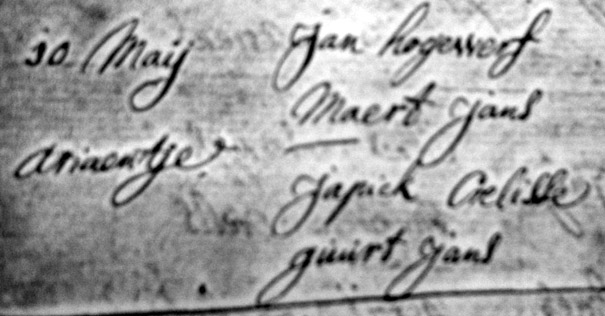 30 Maij
Ariaentje
Jan hogewerf
Maert Jans
Japick Crelisse
guurt Jans